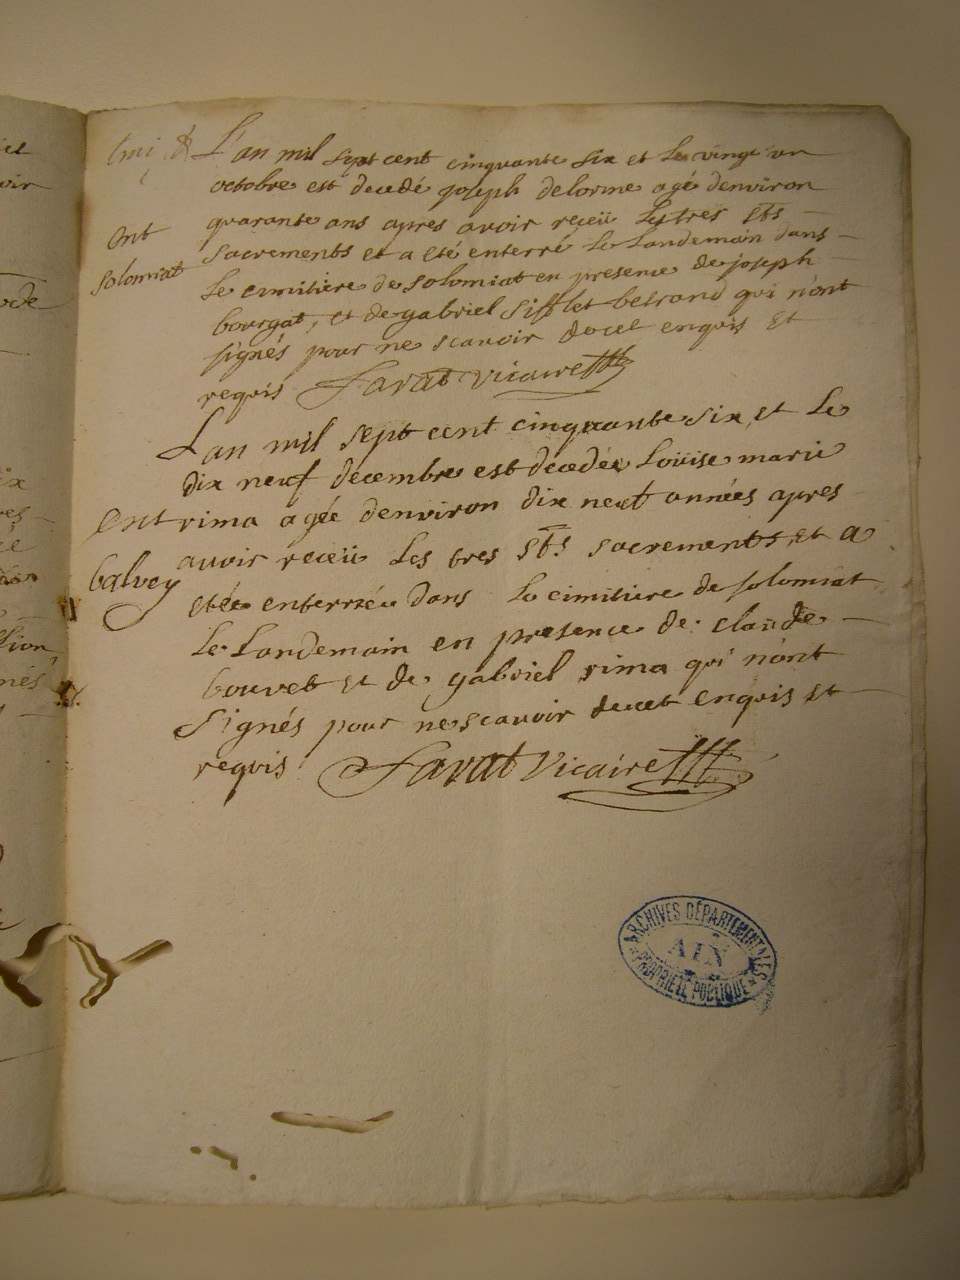 L'an mil sept cent cinquante six et le vingt un
octobre est decedé joseph delorme agé denviron
quarante ans apres avoir reçeü les tres Sts
Ent
sacrements et a eté enterré le Landemain dans
solomiat
Le cimitiere de solomiat en presence de joseph
bourgat, et de gabriel Sifflet betrand qui n'ont
signés pour ne scavoir decet enquis et
requis Favat vicaire
L'an mil sept cent cinquante six et Le
dix neuf decembre est decedée Loüise marie
Ent
rima agée denviron dix neuf années apres
avoir reçeü Les tres Sts sacrements, et a
balvey
etée enterrée dans Le cimitiere de solomiat
Le Landemain en presence de claude
bouvet et de gabriel rima qui n'ont
Signés pour ne scavoir decet enquis et
requis Favat Vicaire
ARCHIVES DÉPARTEMENTALES
AIN
PROPRIÉTÉ PUBLIQUE